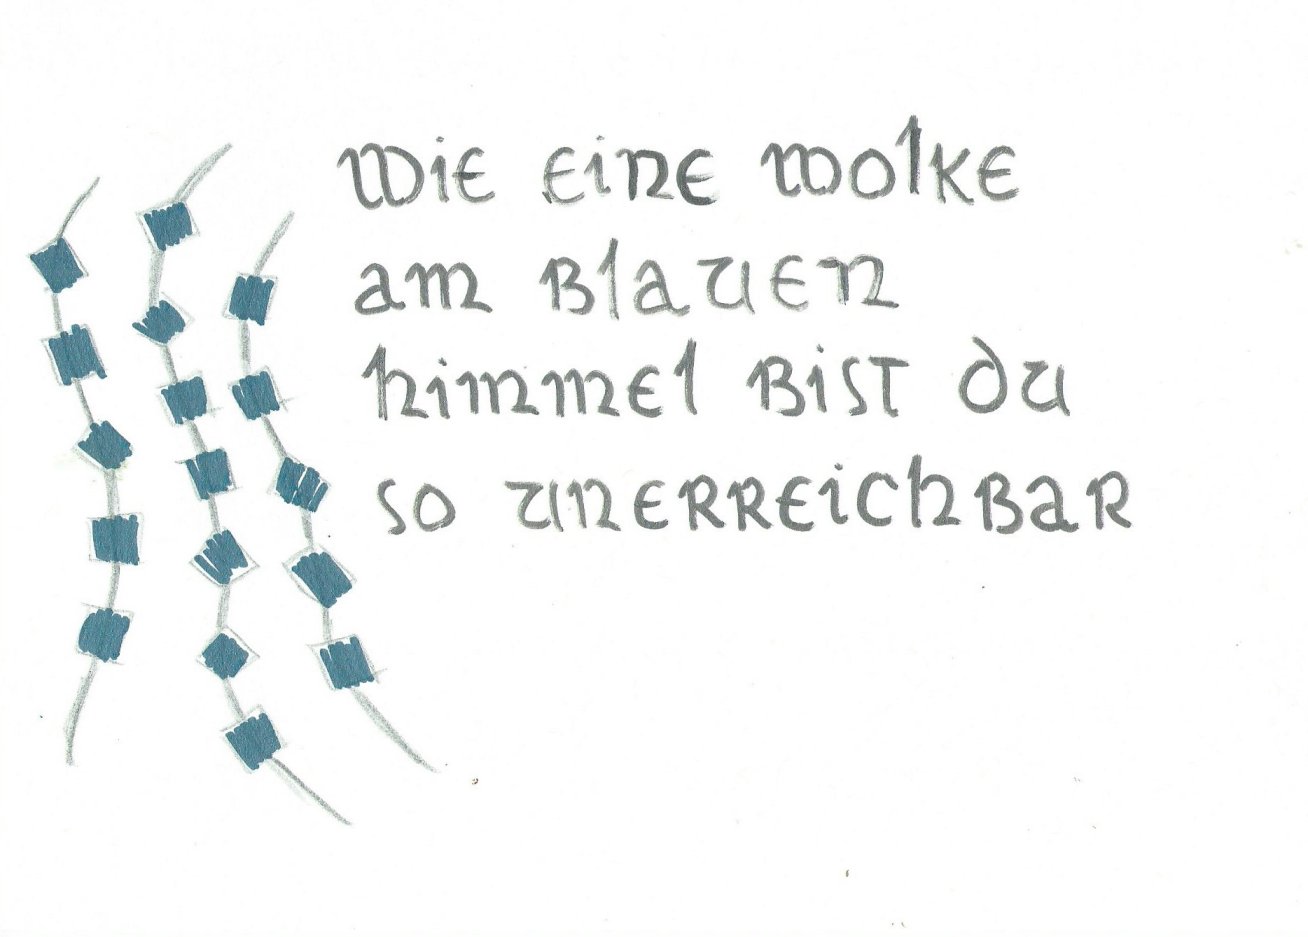 wie eine wolke
am blauen
himmel bist du
so unerreichbar